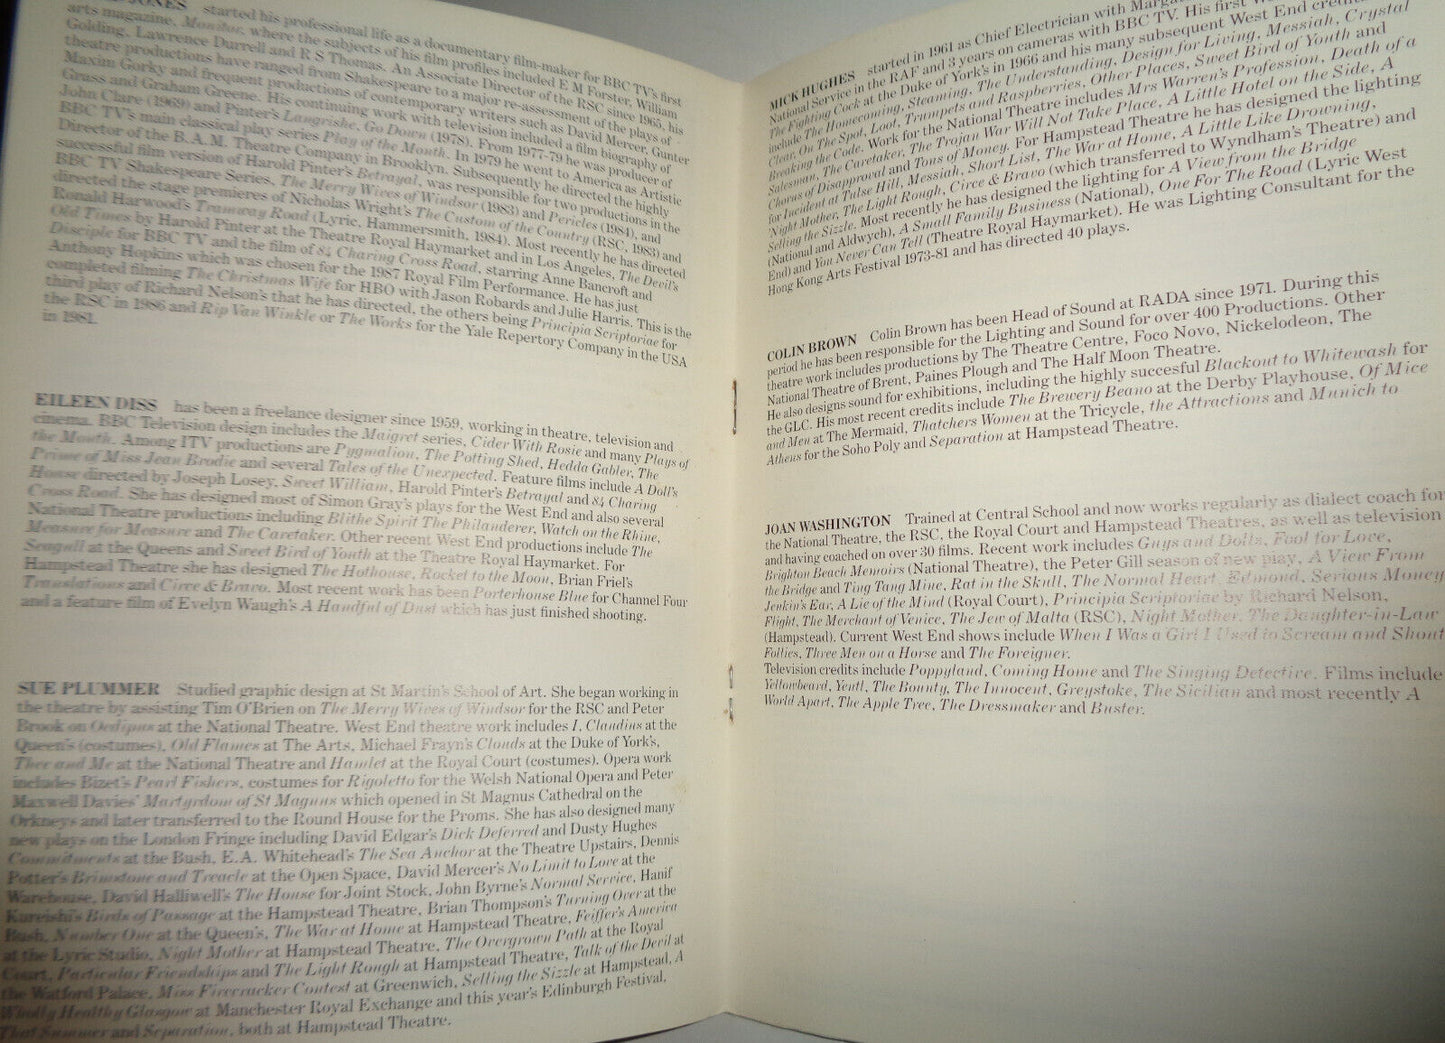 JONES started his professional life as a documentary film-maker for BBC TV's first
arts magazine, Monitor, where the subjects of his film profiles included E M Forster, William
Golding, Lawrence Durrell and R S Thomas. An Associate Director of the RSC since 1965, his
theatre productions have ranged from Shakespeare to a major re-assessment of the plays of
Maxim Gorky and frequent productions of contemporary writers such as David Mercer, Gunter
Grass and Graham Greene. His continuing work with television included a film biography of
John Clare (1969) and Pinter's Langrishe, Go Down (1978). From 1977-79 he was producer of
BBC TV's main classical play series Play of the Month. In 1979 he went to America as Artistic
Director of the B.A.M. Theatre Company in Brooklyn. Subsequently he directed the highly
successful film version of Harold Pinter's Betrayal, was responsible for two productions in the
BBC TV Shakespeare Series, The Merry Wives of Windsor (1983) and Pericles (1984), and
directed the stage premieres of Nicholas Wright's The Custom of the Country (RSC, 1983) and
Ronald Harwood's Tramway Road (Lyric, Hammersmith, 1984). Most recently he has directed
Old Times by Harold Pinter at the Theatre Royal Haymarket and in Los Angeles, The Devil's
Disciple for BBC TV and the film of 84 Charing Cross Road, starring Anne Bancroft and
Anthony Hopkins which was chosen for the 1987 Royal Film Performance. He has just
completed filming The Christmas Wife for HBO with Jason Robards and Julie Harris. This is the
third play of Richard Nelson's that he has directed, the others being Principia Scriptoriae for
the RSC in 1986 and Rip Van Winkle or The Works for the Yale Repertory Company in the USA
in 1981.
EILEEN DISS has been a freelance designer since 1959, working in theatre, television and
cinema. BBC Television design includes the Maigret series, Cider With Rosie and many Plays of
the Month. Among ITV productions are Pygmalion, The Potting Shed, Hedda Gabler, The
Prime of Miss Jean Brodie and several Tales of the Unexpected. Feature films include A Doll's
House directed by Joseph Losey, Sweet William, Harold Pinter's Betrayal and 84 Charing
Cross Road. She has designed most of Simon Gray's plays for the West End and also several
National Theatre productions including Blithe Spirit The Philanderer, Watch on the Rhine,
Measure for Measure and The Caretaker. Other recent West End productions include The
Seagull at the Queens and Sweet Bird of Youth at the Theatre Royal Haymarket. For
Hampstead Theatre she has designed The Hothouse, Rocket to the Moon, Brian Friel's
Translations and Circe & Bravo. Most recent work has been Porterhouse Blue for Channel Four
and a feature film of Evelyn Waugh's A Handful of Dust which has just finished shooting.
SUE PLUMMER Studied graphic design at St Martin's School of Art. She began working in
the theatre by assisting Tim O'Brien on The Merry Wives of Windsor for the RSC and Peter
Brook on Oedipus at the National Theatre. West End theatre work includes I, Claudius at the
Queen's (costumes), Old Flames at The Arts, Michael Frayn's Clouds at the Duke of York's,
Thee and Me at the National Theatre and Hamlet at the Royal Court (costumes). Opera work
includes Bizet's Pearl Fishers, costumes for Rigoletto for the Welsh National Opera and Peter
Maxwell Davies' Martyrdom of St Magnus which opened in St Magnus Cathedral on the
Orkneys and later transferred to the Round House for the Proms. She has also designed many
new plays on the London Fringe including David Edgar's Dick Deferred and Dusty Hughes
Commitments at the Bush, E.A. Whitehead's The Sea Anchor at the Theatre Upstairs, Dennis
Potter's Brimstone and Treacle at the Open Space, David Mercer's No Limit to Love at the
Warehouse, David Halliwell's The House for Joint Stock, John Byrne's Normal Service, Hanif
Kureishi's Birds of Passage at the Hampstead Theatre, Brian Thompson's Turning Over at the
Bush, Number One at the Queen's, The War at Home at Hampstead Theatre, Feiffer's America
at the Lyric Studio, Night Mother at Hampstead Theatre, The Overgrown Path at the Royal
Court, Particular Friendships and The Light Rough at Hampstead Theatre, Talk of the Devil at
the Watford Palace, Miss Firecracker Contest at Greenwich, Selling the Sizzle at Hampstead, A
Wholly Healthy Glasgow at Manchester Royal Exchange and this year's Edinburgh Festival,
That Summer and Separation, both at Hampstead Theatre.
MICK HUGHES started in 1961 as Chief Electrician with
National Service in the RAF and 3 years on cameras with BBC TV. His first
The Fighting Cock at the Duke of York's in 1966 and his many subsequent West End credits
include The Homecoming, Steaming, The Understanding, Design for Living, Messiah, Crystal
Clear, On The Spot, Loot, Trumpets and Raspberries, Other Places, Sweet Bird of Youth and
Breaking the Code. Work for the National Theatre includes Mrs Warren's Profession, Death of a
Salesman, The Caretaker, The Trojan War Will Not Take Place, A Little Hotel on the Side, A
Chorus of Disapproval and Tons of Money. For Hampstead Theatre he has designed the lighting
for Incident at Tulse Hill, Messiah, Short List, The War at Home, A Little Like Drowning,
'Night Mother, The Light Rough, Circe & Bravo (which transferred to Wyndham's Theatre) and
Selling the Sizzle. Most recently he has designed the lighting for A View from the Bridge
(National and Aldwych), A Small Family Business (National), One For The Road (Lyric West
End) and You Never Can Tell (Theatre Royal Haymarket). He was Lighting Consultant for the
Hong Kong Arts Festival 1973-81 and has directed 40 plays.
COLIN BROWN Colin Brown has been Head of Sound at RADA since 1971. During this
period he has been responsible for the Lighting and Sound for over 400 Productions. Other
theatre work includes productions by The Theatre Centre, Foco Novo, Nickelodeon, The
National Theatre of Brent, Paines Plough and The Half Moon Theatre.
He also designs sound for exhibitions, including the highly succesful Blackout to Whitewash for
the GLC. His most recent credits include The Brewery Beano at the Derby Playhouse, Of Mice
and Men at The Mermaid, Thatchers Women at the Tricycle, the Attractions and Munich to
Athens for the Soho Poly and Separation at Hampstead Theatre.
JOAN WASHINGTON Trained at Central School and now works regularly as dialect coach for
the National Theatre, the RSC, the Royal Court and Hampstead Theatres, as well as television
and having coached on over 30 films. Recent work includes Guys and Dolls, Fool for Love,
Brighton Beach Memoirs (National Theatre), the Peter Gill season of new play, A View From
the Bridge and Ting Tang Mine, Rat in the Skull, The Normal Heart, Edmond, Serious Money
Jenkin's Ear, A Lie of the Mind (Royal Court), Principia Scriptoriae by Richard Nelson,
Flight, The Merchant of Venice, The Jew of Malta (RSC), Night Mother, The Daughter-in-Law
(Hampstead). Current West End shows include When I Was a Girl I Used to Scream and Shout
Follies, Three Men on a Horse and The Foreigner.
Television credits include Poppyland, Coming Home and The Singing Detective. Films include
Yellowbeard, Yentl, The Bounty, The Innocent, Greystoke, The Sicilian and most recently A
World Apart, The Apple Tree, The Dressmaker and Buster.